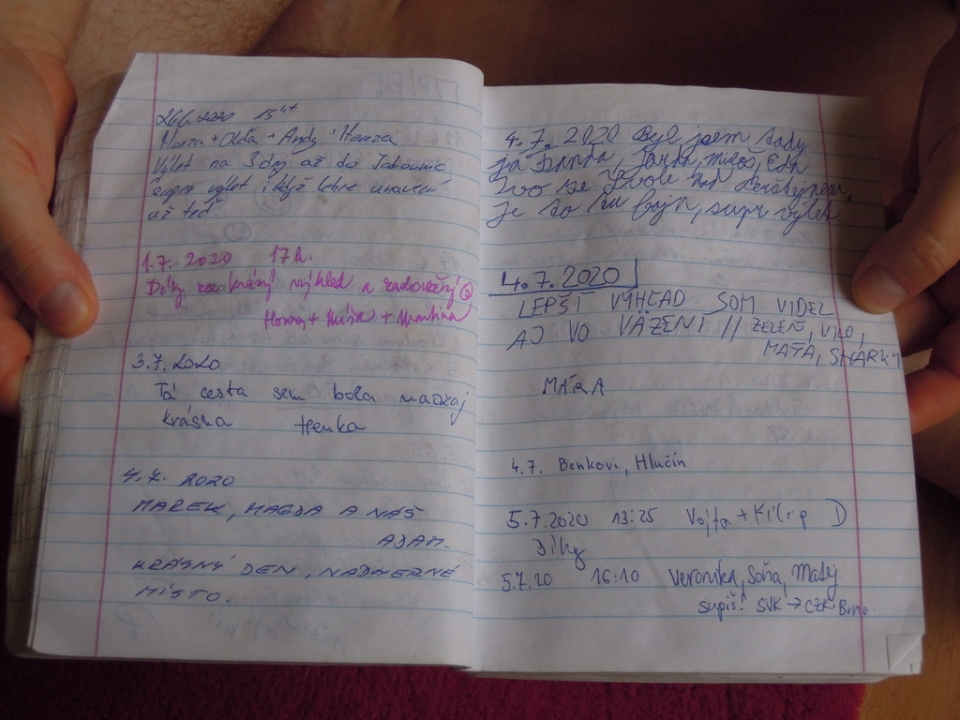 26.6.2020 15⁴⁷
Honza + Olča + Andy + Honza
Výlet na 3 dny až do Jedovnic
super výlet i když lehce unavení
až teď
1.7. 2020 17h.
Díky za krásný výhled a
+ Martina
3.7.2020
Tá cesta sem bola naozaj
krásna Henka
4.7. 2020
MAREK, MAGDA A NÁŠ
ADAM.
KRÁSNÝ DEN, NÁDHERNÉ
MÍSTO.
4.7. 2020 Byl jsem tady
já Franta, Jarda,
Ivo ze Zvole nad Pernštejnem,
je to tu fajn, supr výlet.
4.7.2020
LEPŠÍ VÝHĽAD SOM VIDEL
AJ VO VÄZENÍ // ZELEŇ, VIKO,
MAŤA, SHARKY
MÁRA
4.7. Benkovi, Hlučín
5.7.2020 13:25 Vojta + Filip D
Díky
5.7.20 16:10 Veronika, Soňa, Matej
supiš! SVK → CZK Brno